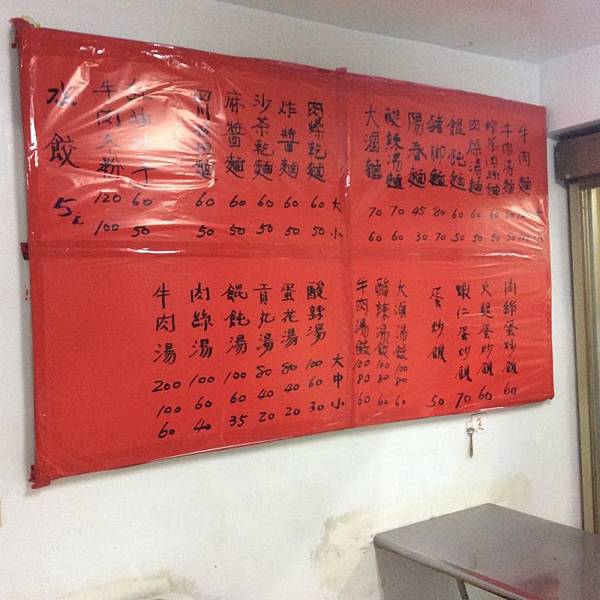 牛肉麵
牛肉湯麵
榨菜肉絲麵
肉燥湯麵 60 50
餛飩麵 60 50
豬腳麵 80 70
陽春麵 45 30
酸辣湯麵 70 60
大滷麵 70 60
大
小
肉燥乾麵 60 50
炸醬麵 60 50
沙茶乾麵 60 50
麻醬麵 60 50
麵 60 50
60 50
牛肉冬粉 120 100
水餃 5元
肉絲蛋炒飯 60
火腿蛋炒飯 60
蝦仁蛋炒飯 70
蛋炒飯 50
大滷湯餃 100 80 60
酸辣湯餃 100 80 60
牛肉湯餃 100 80 60
大 中 小
酸辣湯 100 60 30
蛋花湯 80 40 20
貢丸湯 80 40 20
餛飩湯 100 60 35
肉絲湯 100 60 40
牛肉湯 200 100 60